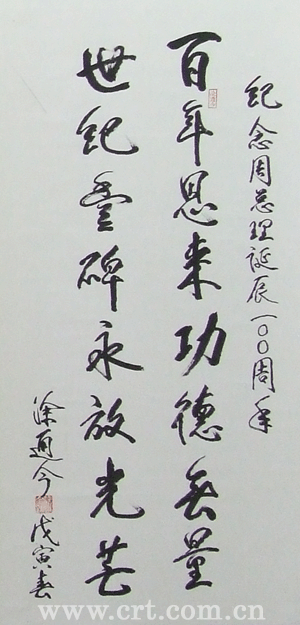 纪念周总理诞辰一〇〇周年
百年恩来功德无量
世纪丰碑永放光芒
涂通今
戊寅春
www.crt.com.cn